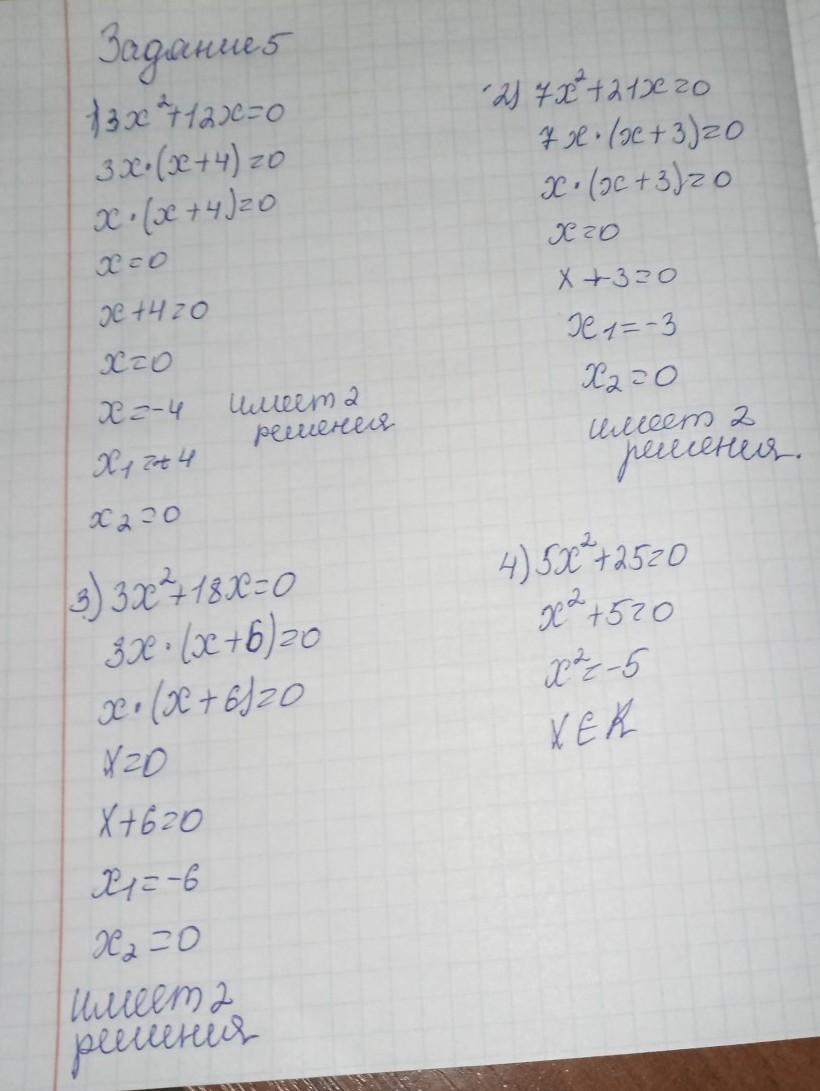 Задание 5
1) 3x²+12x=0
3x·(x+4)=0
x·(x+4)=0
x=0
x+4=0
x=0
x=-4 имеет 2
решения
x₁=-4
x₂=0
2) 7x²+21x=0
7x·(x+3)=0
x·(x+3)=0
x=0
x+3=0
x₁=-3
x₂=0
имеет 2
решения.
3) 3x²+18x=0
3x·(x+6)=0
x·(x+6)=0
x=0
x+6=0
x₁=-6
x₂=0
имеет 2
решения
4) 5x²+25=0
x²+5=0
x²=-5
x∈R